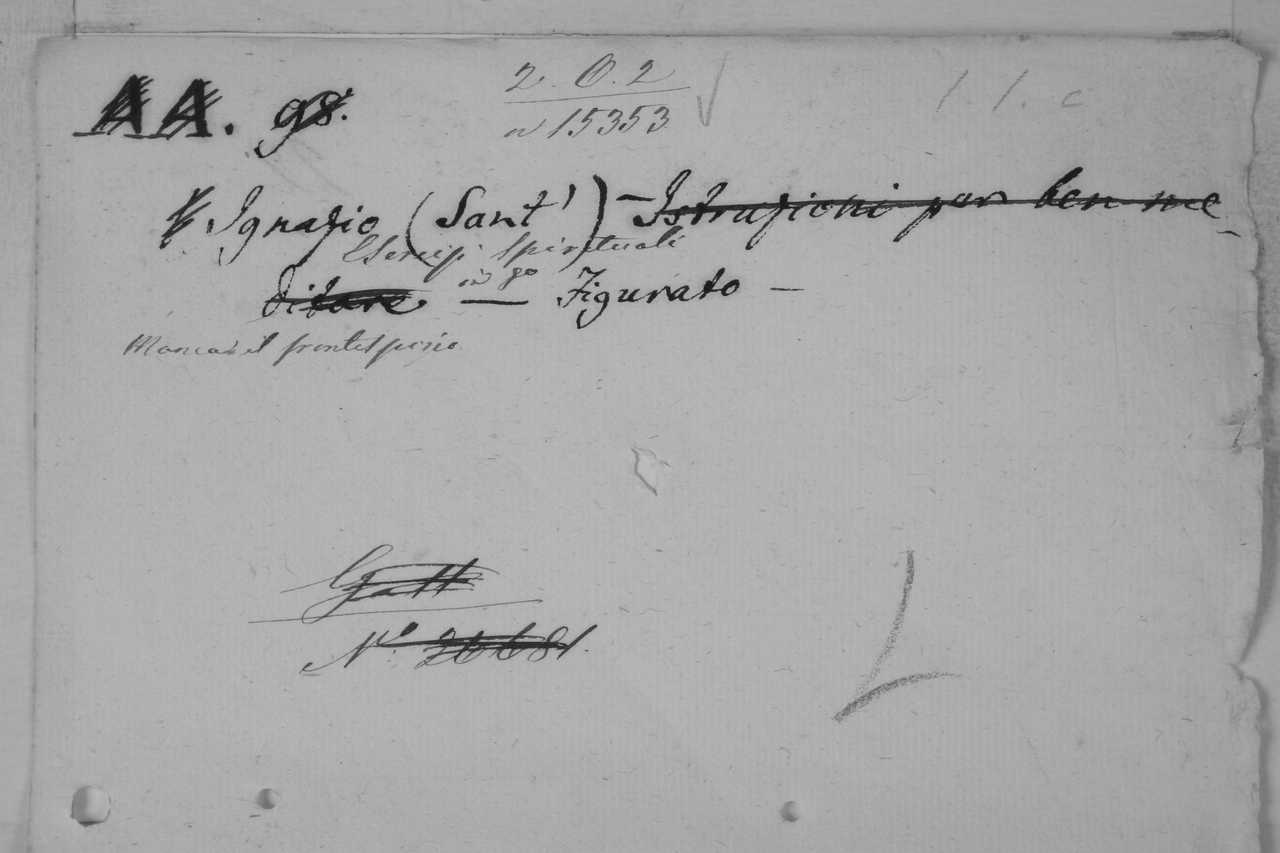 2. O. 2
AA. 98.
n 15353
1. 1. c
Ignazio (Sant') - Istruzioni per ben me-
Esercizi Spirituali
ditare — in 8º Figurato -
Manca il frontespizio
Gatt
Nº. 26681.
L